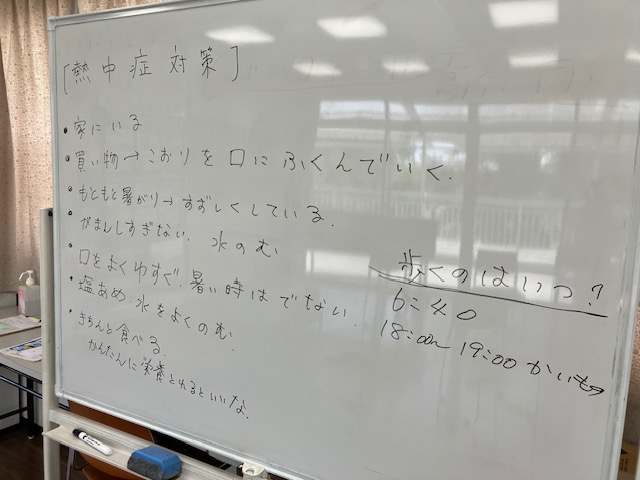 [熱中症対策]
• 家にいる
• 買い物→こおりを口にふくんでいく.
• もともと暑がり→すずしくしている.
• がまんしすぎない. 水のむ
• 口をよくゆすぐ. 暑い時はでない.
• 塩あめ. 水をよくのむ.
• きちんと食べる.
かんたんに栄養とれるといいな.
歩くのはいつ?
6:40
18:00〜19:00 かいもの